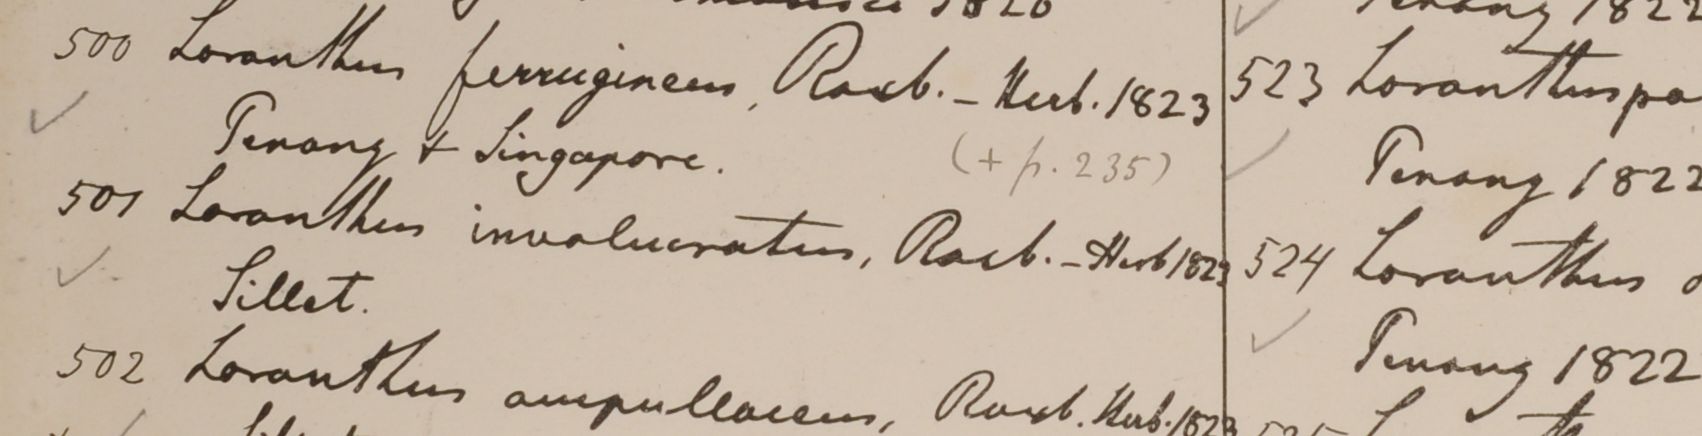 1820
500 Loranthus ferrugineus, Roxb. – Herb. 1823
Penang & Singapore.
(+ p. 235)
501 Loranthus involucratus, Roxb. – Herb 1823
Sillet.
502 Loranthus ampullaceus, Roxb. Herb. 1823
Sillet
Penang 1822
523 Loranthus pa
Penang 1822
524 Loranthus
Penang 1822
525